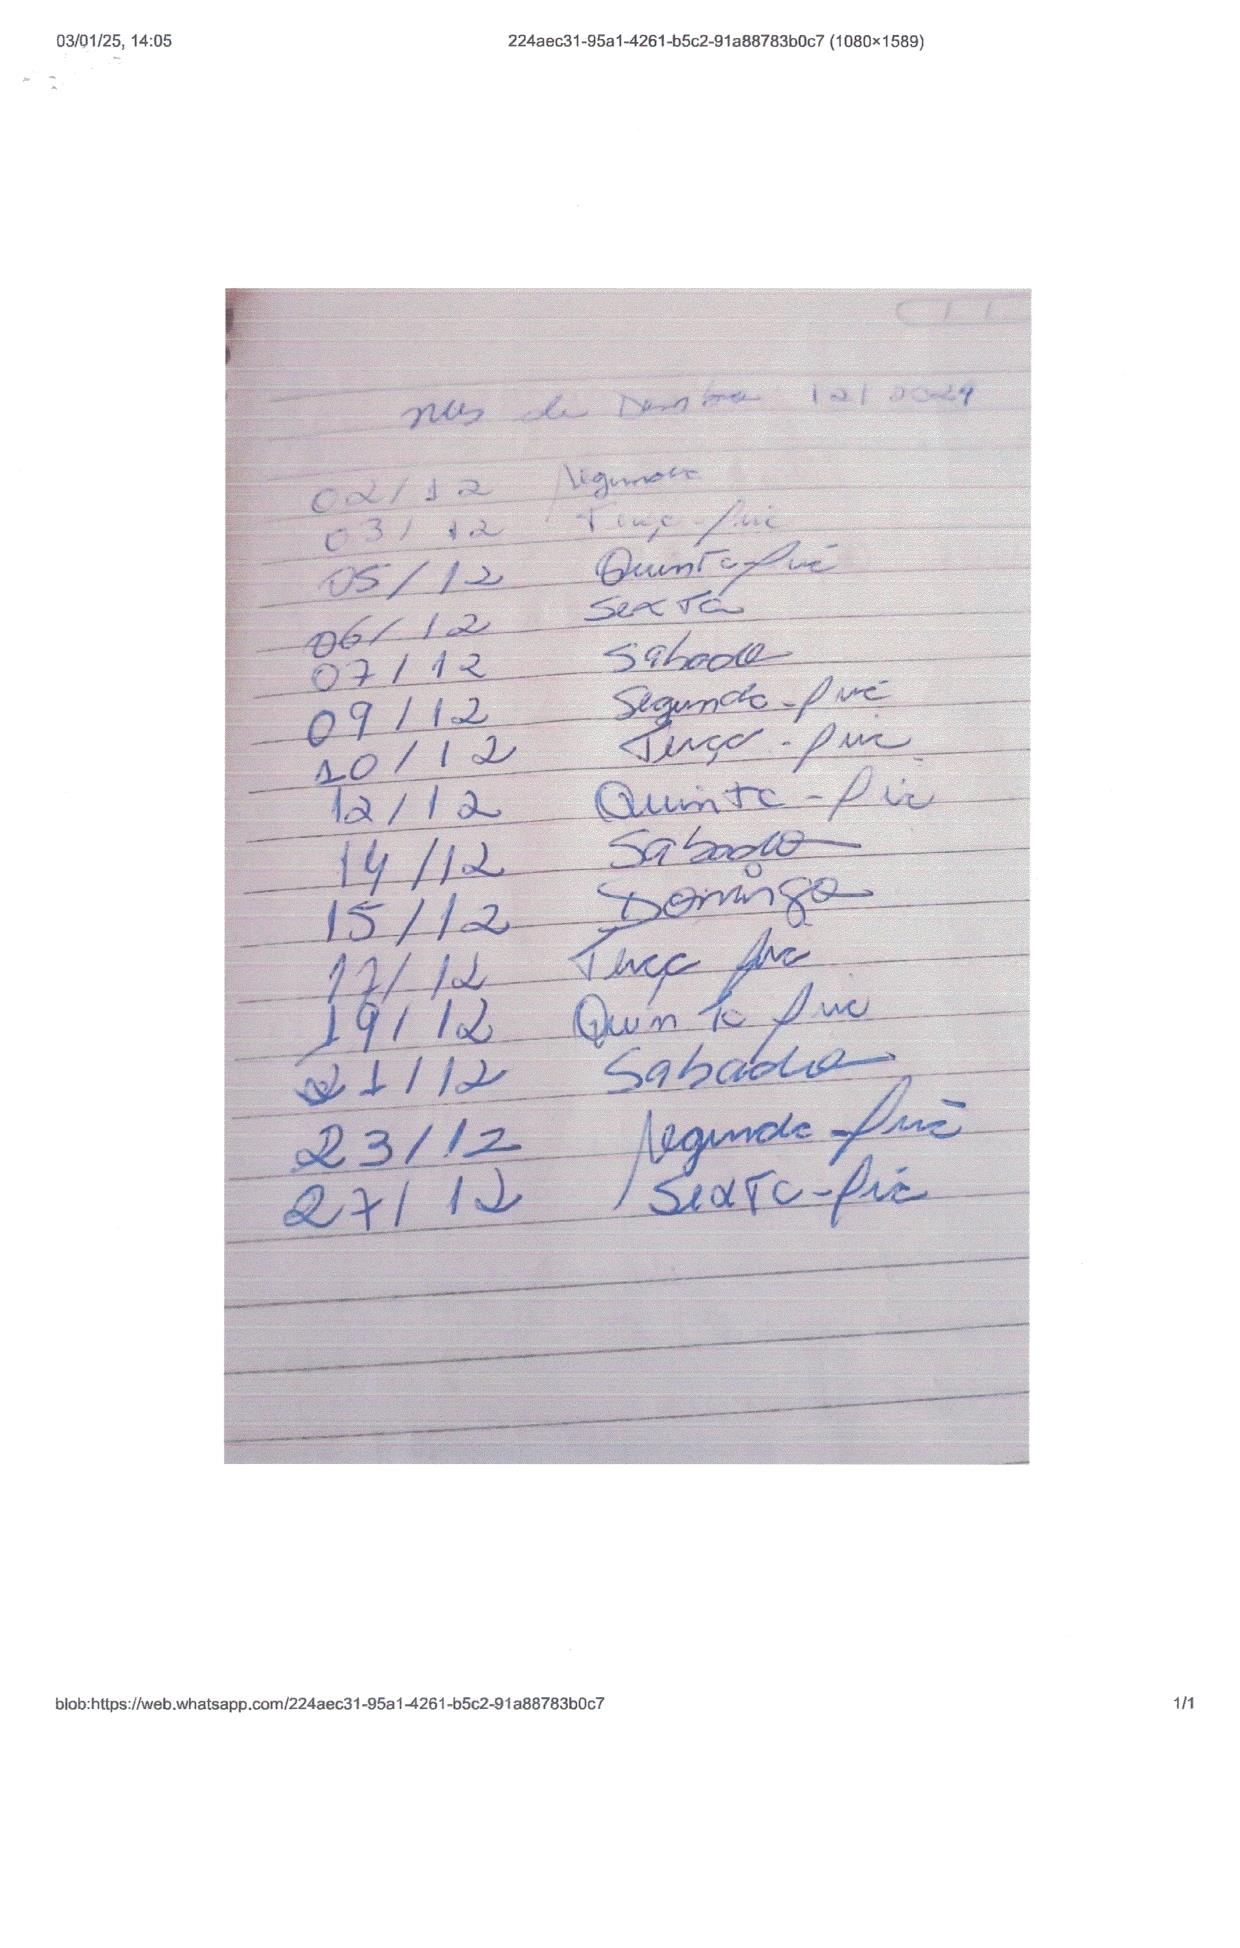 03/01/25, 14:05 224aec31-95a1-4261-b5c2-91a88783b0c7 (1080×1589)
mes de Dezembro 12/2024
02/12 Segunda
03/12 Terça-feic
05/12 Quinta-feic
06/12 Sexta
07/12 Sabado
09/12 Segunda-feic
10/12 Terça-feic
12/12 Quinta-feic
14/12 Sabado
15/12 Domingo
17/12 Terça feic
19/12 Quinta feic
21/12 Sabado
23/12 Segunda-feic
27/12 Sexta-feic
blob:https://web.whatsapp.com/224aec31-95a1-4261-b5c2-91a88783b0c7 1/1